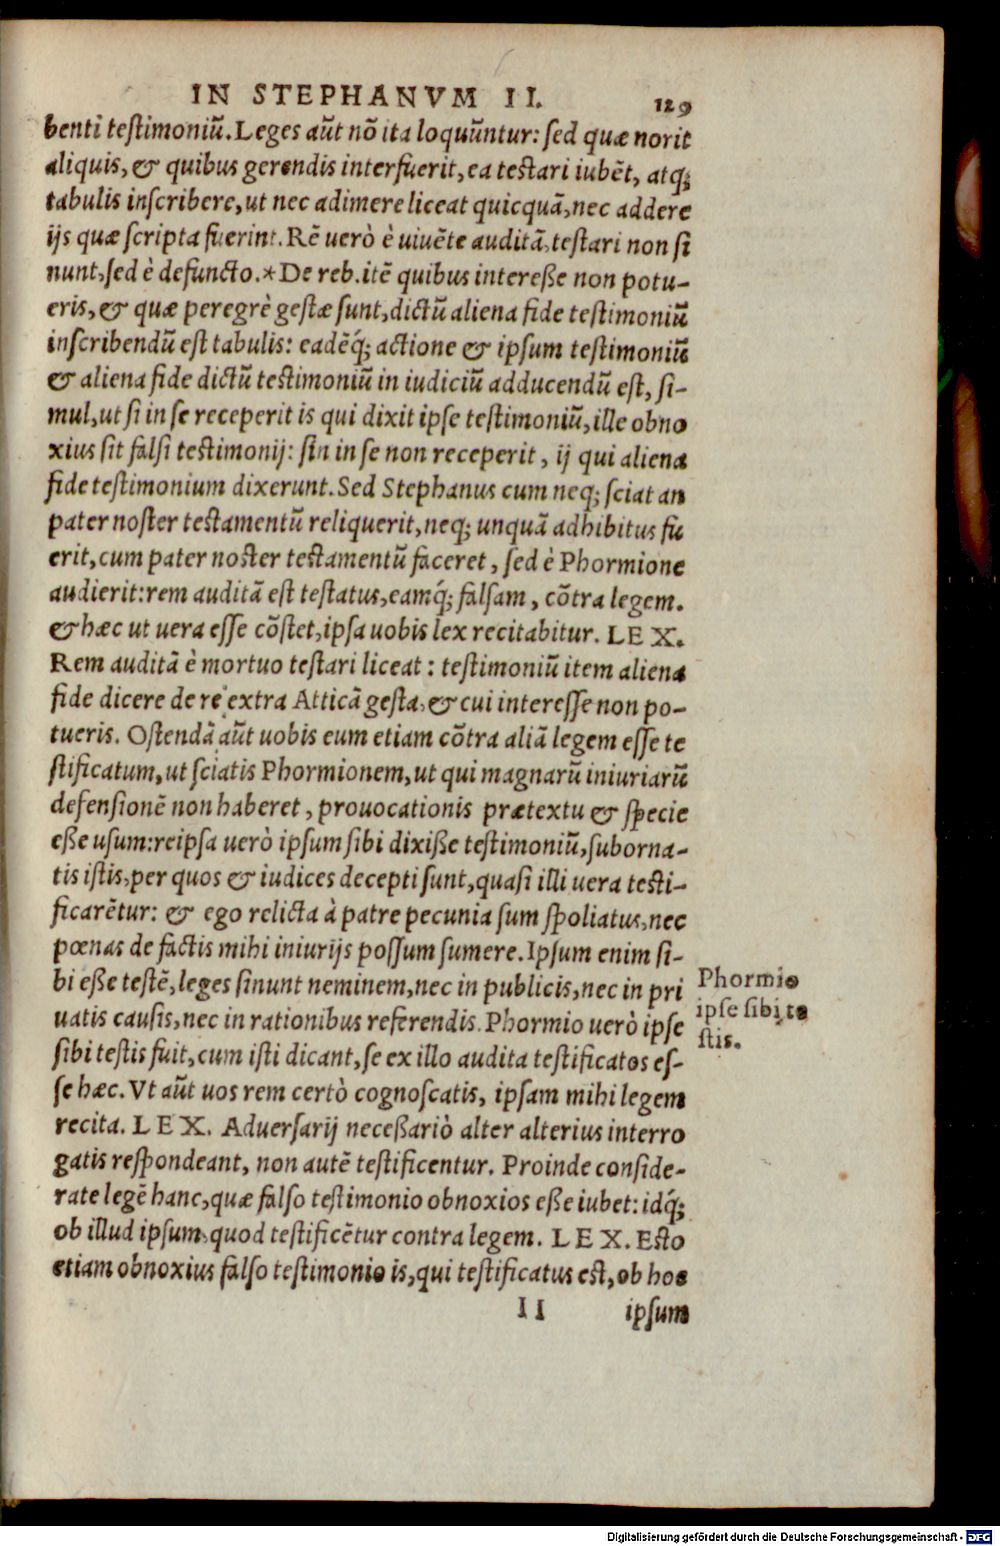 IN STEPHANVM II. 129
benti testimoniũ. Leges aũt nõ ita loquũntur: sed quæ norit
aliquis, & quibus gerendis interfuerit, ea testari iubẽt, atq;
tabulis inscribere, ut nec adimere liceat quicquã, nec addere
ijs quæ scripta fuerint. Rẽ uerò è uiuẽte auditã, testari non si
nunt, sed è defuncto.* De reb. itẽ quibus interesse non potu-
eris, & quæ peregrè gestæ sunt, dictũ aliena fide testimoniũ
inscribendũ est tabulis: eadẽq́; actione & ipsum testimoniũ
& aliena fide dictũ testimoniũ in iudiciũ adducendũ est, si-
mul, ut si in se receperit is qui dixit ipse testimoniũ, ille obno
xius sit falsi testimonij: sin in se non receperit, ij qui aliena
fide testimonium dixerunt. Sed Stephanus cum neq; sciat an
pater noster testamentũ reliquerit, neq; unquã adhibitus fu
erit, cum pater noster testamentũ faceret, sed è Phormione
audierit: rem auditã est testatus, eamq́; falsam, cõtra legem.
& hæc ut uera esse cõstet, ipsa uobis lex recitabitur. LEX.
Rem auditã è mortuo testari liceat: testimoniũ item aliena
fide dicere de re extra Atticã gesta, & cui interesse non po-
tueris. Ostendã aũt uobis eum etiam cõtra aliã legem esse te
stificatum, ut sciatis Phormionem, ut qui magnarũ iniuriarũ
defensionẽ non haberet, prouocationis prætextu & specie
esse usum: reipsa uerò ipsum sibi dixisse testimoniũ, suborna-
tis istis, per quos & iudices decepti sunt, quasi illi uera testi-
ficarẽtur: & ego relicta à patre pecunia sum spoliatus, nec
pœnas de factis mihi iniurijs possum sumere. Ipsum enim si-
bi esse testẽ, leges sinunt neminem, nec in publicis, nec in pri
uatis causis, nec in rationibus referendis. Phormio uerò ipse
sibi testis fuit, cum isti dicant, se ex illo audita testificatos es-
se hæc. Vt aũt uos rem certò cognoscatis, ipsam mihi legem
recita. LEX. Aduersarij necessariò alter alterius interro
gatis respondeant, non autẽ testificentur. Proinde conside-
rate legẽ hanc, quæ falso testimonio obnoxios esse iubet: idq́;
ob illud ipsum, quod testificẽtur contra legem. LEX. Esto
etiam obnoxius falso testimonio is, qui testificatus est, ob hoc
II ipsum
Phormio
ipse sibi te
stis.
Digitalisierung gefördert durch die Deutsche Forschungsgemeinschaft - DFG